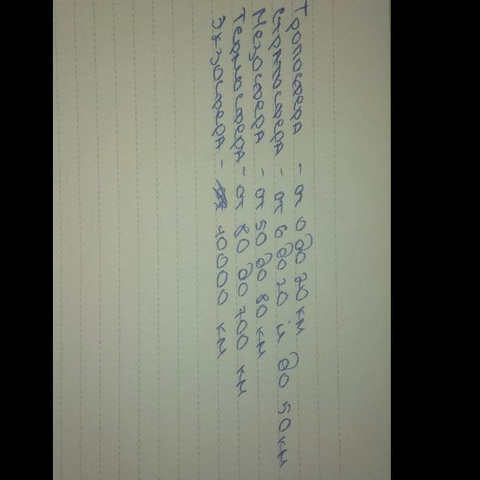 Тропосфера - от 0 до 20 км
Стратосфера - от 6 до 20 и до 50 км
Мезосфера - от 50 до 80 км
Термосфера - от 80 до 700 км
Экзосфера - 10000 км